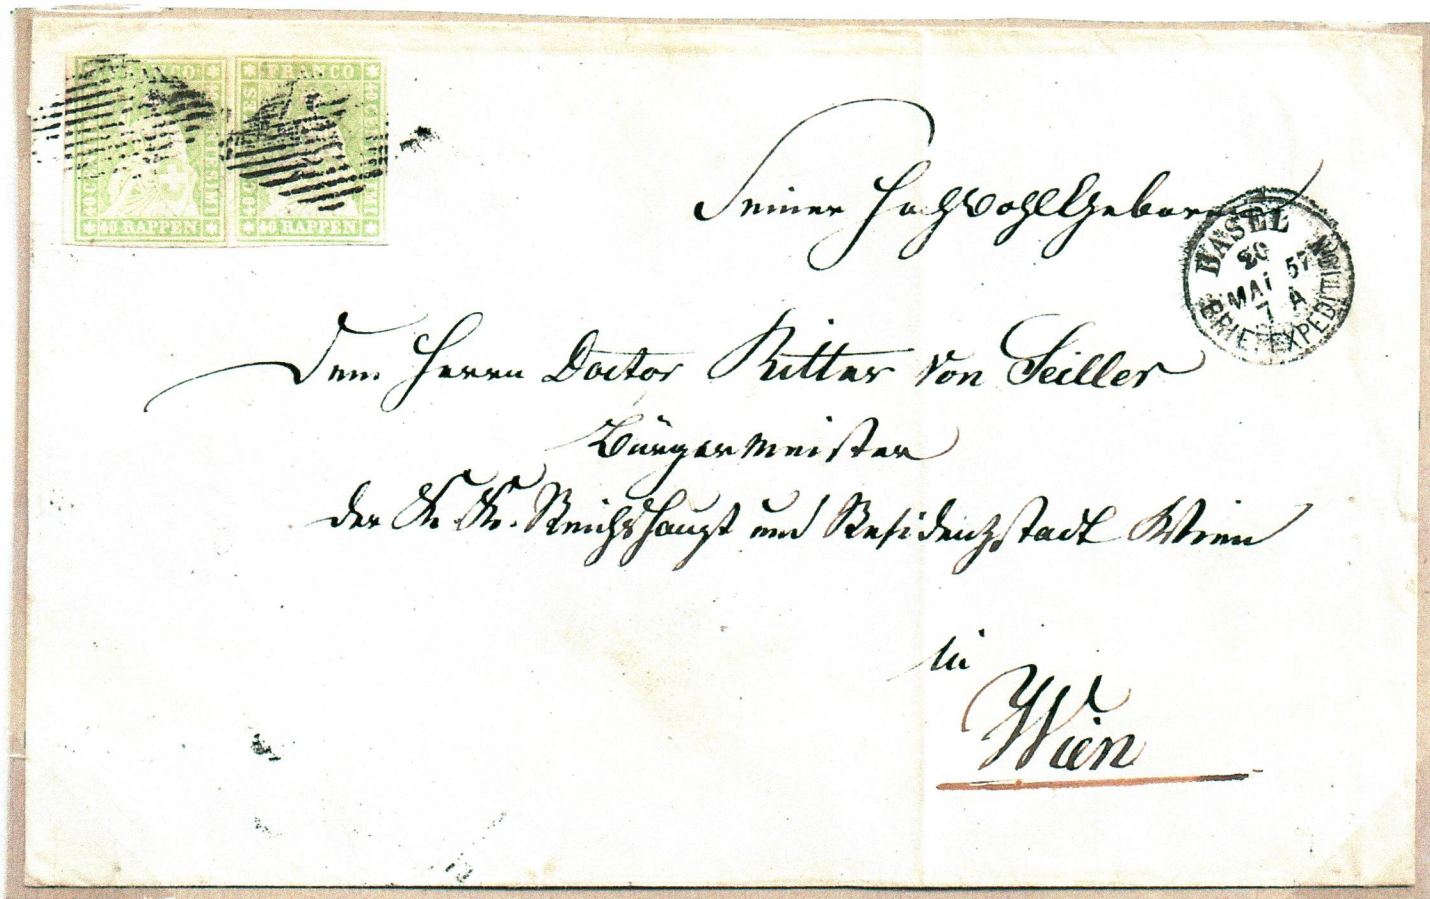 FRANCO
40 CENTESIMI
40 RAPPEN
FRANCO
40 CENTIMES
40 CENTESIMI
40 RAPPEN
Seiner Hochwohlgeboren
BASEL
20
MAI 57
7 A
BRIEFEXPEDITION
Dem Herrn Doctor Ritter von Seiller
Bürgermeister
der K. K. Reichshaupt und Residenzstadt Wien
in
Wien